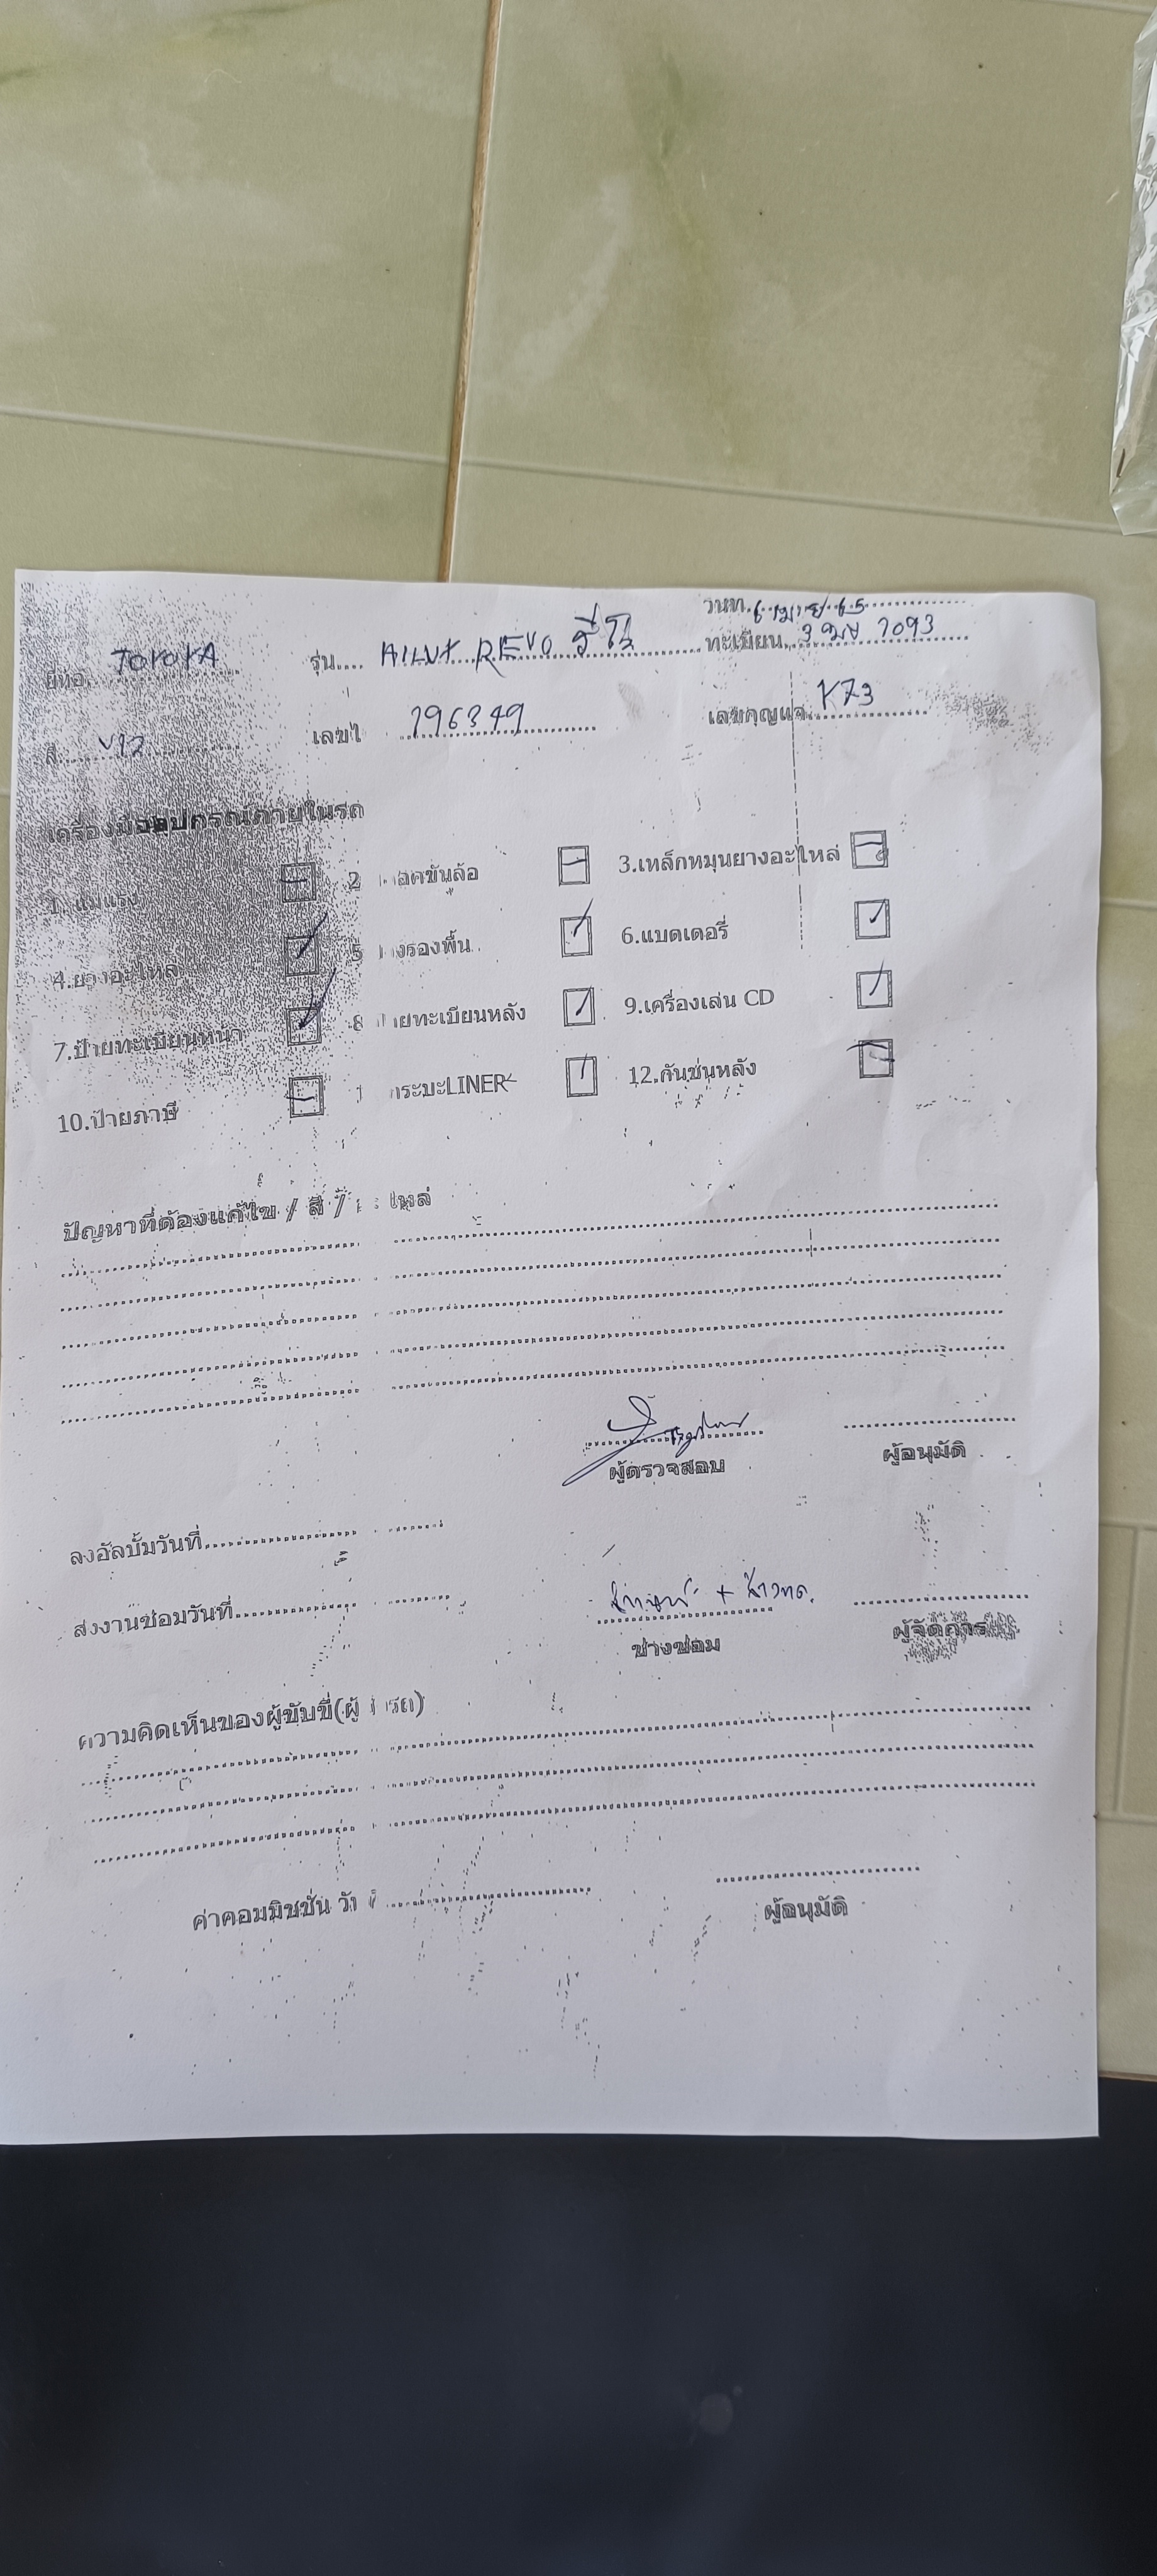 วนท. 6 เมษายน 65
ยี่ห้อ TOYOTA รุ่น.... HILUX REVO ทะเบียน 7093
สี เลขไ 796349 เลขกุญแจ K73
เครื่องมือ อุปกรณ์ภายในรถ
1. แม่แรง 2 ขันล้อ 3.เหล็กหมุนยางอะไหล่
4.ยางอะไหล่ 5 งรองพื้น 6.แบตเตอรี่
7.ป้ายทะเบียนหน้า 8 ายทะเบียนหลัง 9.เครื่องเล่น CD
10.ป้ายภาษี 1 กระบะLINER 12.กันชนหลัง
ปัญหาที่ต้องแก้ไข / สี / ไหล่
ผู้ตรวจสอบ ผู้อนุมัติ
ลงอัลบั้มวันที่
ส่งงานซ่อมวันที่
ช่างซ่อม ผู้จัดการ
ความคิดเห็นของผู้ขับขี่(ผู้ รถ)
ค่าคอมมิชชั่น วั
ผู้อนุมัติ